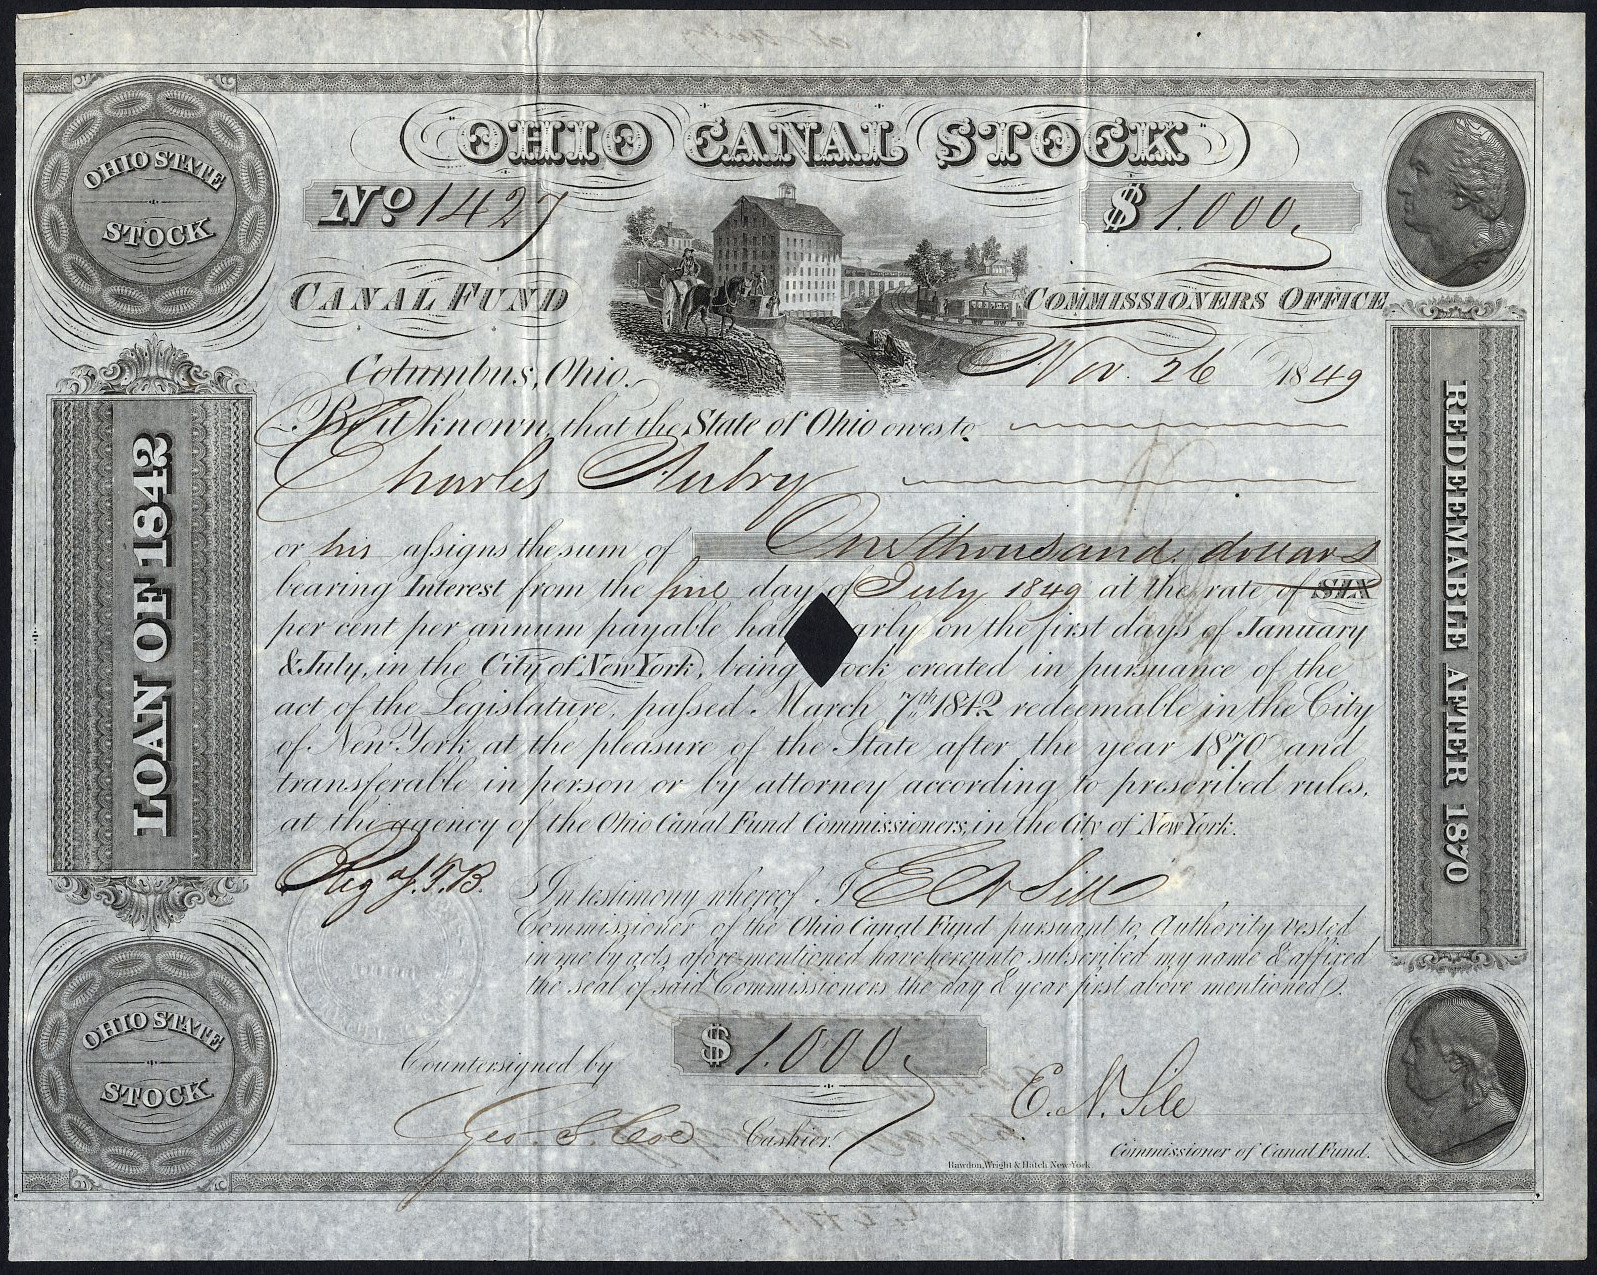 OHIO CANAL STOCK
OHIO STATE
STOCK
No 1427
$ 1.000
CANAL FUND
COMMISSIONERS OFFICE
Columbus, Ohio.
Nov. 26 1849
Be it known, that the State of Ohio owes to
Charles Aubry
or his assigns the sum of One thousand dollars
bearing Interest from the first day of July 1849 at the rate of SIX
per cent per annum payable hal arly, on the first days of January
& July, in the City of New York, being ock created in pursuance of the
act of the Legislature, passed March 7th 1842 redeemable in the City
of New York at the pleasure of the State after the year 1870 and
transferable in person or by attorney according to prescribed rules,
at the agency of the Ohio Canal Fund Commissioners, in the City of New York.
LOAN OF 1842
REDEEMABLE AFTER 1870
In testimony whereof I E N Sill
Commissioner of the Ohio Canal Fund pursuant to Authority vested
in me by acts afore mentioned have hereunto subscribed my name & affixed
the seal of said Commissioners the day & year first above mentioned.
OHIO STATE
STOCK
$ 1.000
Countersigned by
Geo. S. Coe Cashier.
E. N. Sill
Commissioner of Canal Fund.
Rawdon, Wright & Hatch New York